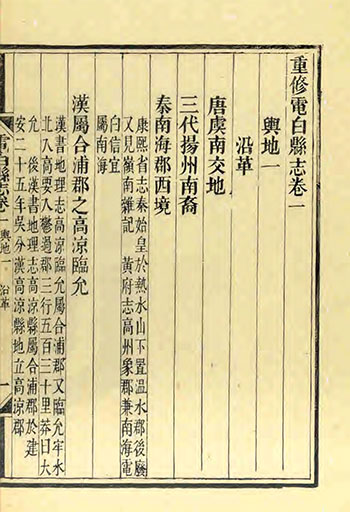 重修電白縣志卷一
輿地一
沿革
唐虞南交地
三代揚州南裔
秦南海郡西境
康熙省志秦始皇於熱水山下置溫水郡後廢
又見嶺南雜記 黃府志高州象郡兼南海電
白信宜
屬南海
漢屬合浦郡之高涼臨允
漢書地理志高涼臨允屬合浦郡又臨允牢水
北入高要入鬱過郡三行五百三十里莽曰大
允 後漢書地理志高涼縣屬合浦郡於建
安二十五年吳分漢高涼縣地立高涼郡
電白縣志卷一 輿地一 沿革 一